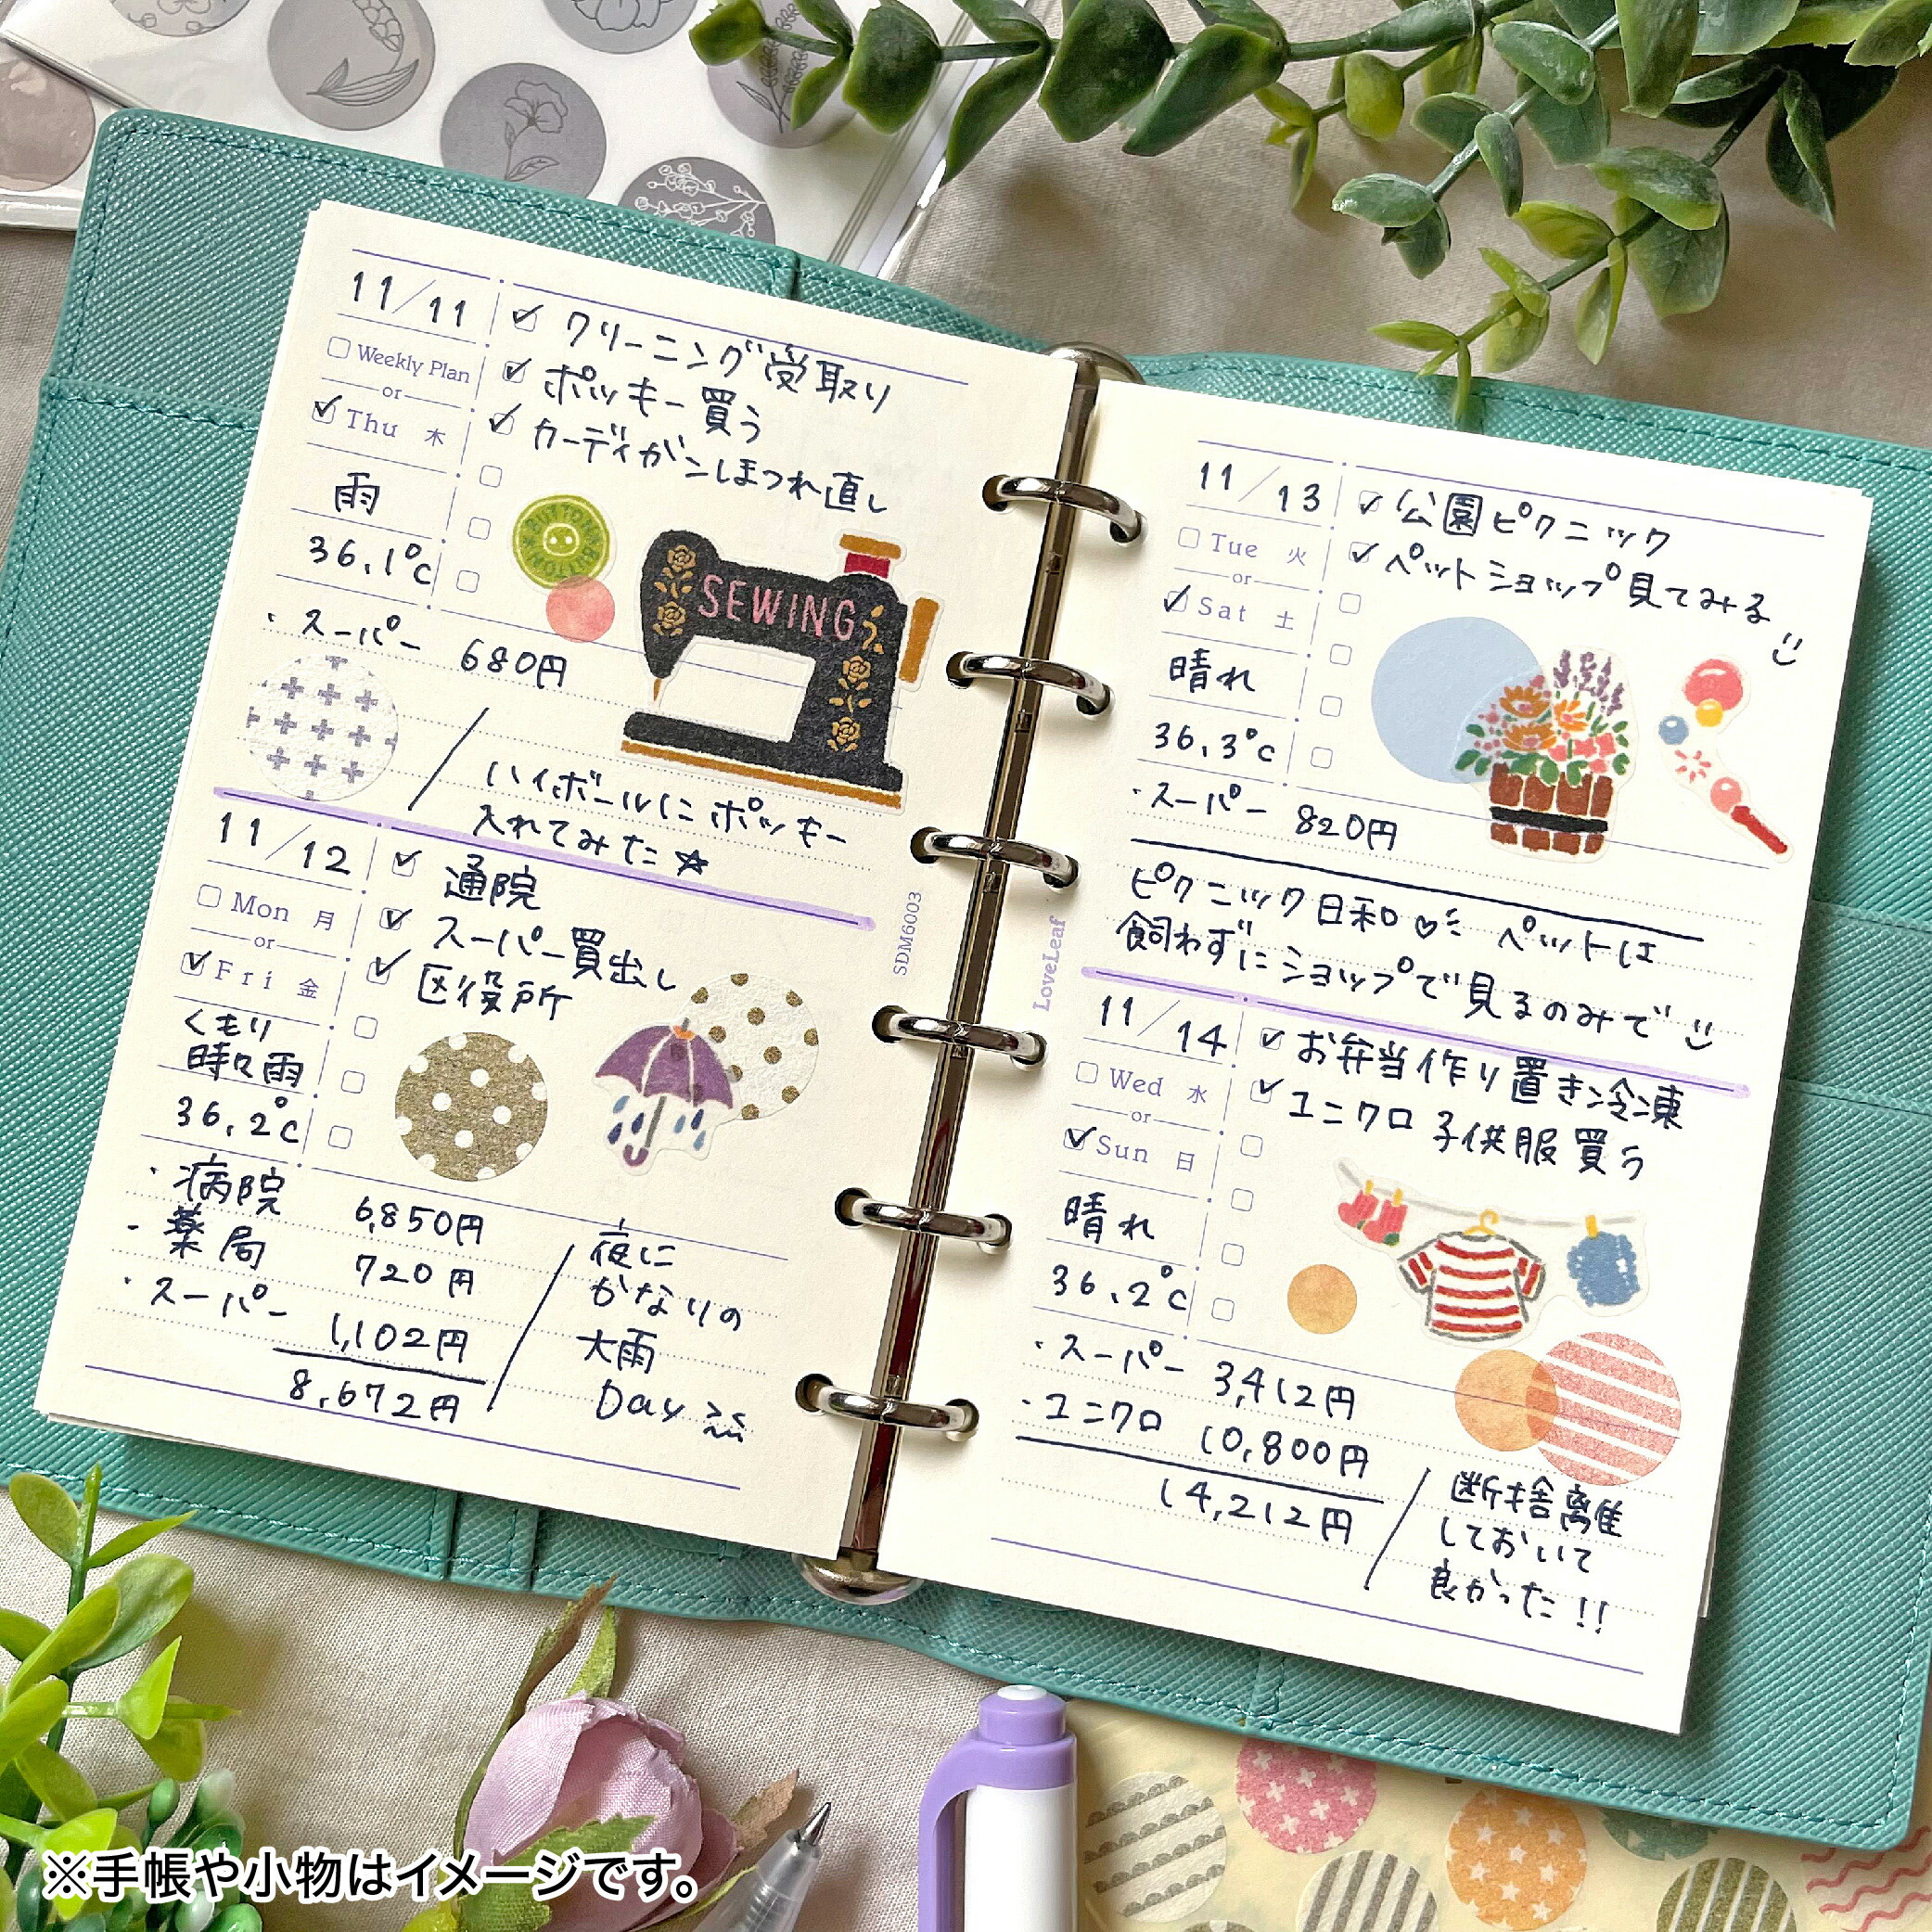 11/11
✓ クリーニング受取り
□ Weekly Plan
✓ ポッキー買う
or
✓ Thu 木
✓ カーディガンほつれ直し
雨
36.1℃
BUTTON
SEWING
・スーパー 680円
ハイボールにポッキー
入れてみた☆
11/12
✓ 通院
□ Mon 月
✓ スーパー買出し
or
✓ Fri 金
✓ 区役所
くもり
時々雨
36.2℃
・病院 6,850円
・薬局 720円
・スーパー 1,102円
8,672円
夜に
かなりの
大雨
Day
SDM6003
LoveLeaf
11/13
✓ 公園ピクニック
□ Tue 火
✓ ペットショップ見てみる
or
✓ Sat 土
晴れ
36.3℃
・スーパー 820円
ピクニック日和♡ ペットは
飼わずにショップで見るのみで
11/14
✓ お弁当作り置き冷凍
□ Wed 水
✓ ユニクロ子供服買う
or
✓ Sun 日
晴れ
36.2℃
・スーパー 3,412円
・ユニクロ 10,800円
14,212円
断捨離
しておいて
良かった!!
※手帳や小物はイメージです。